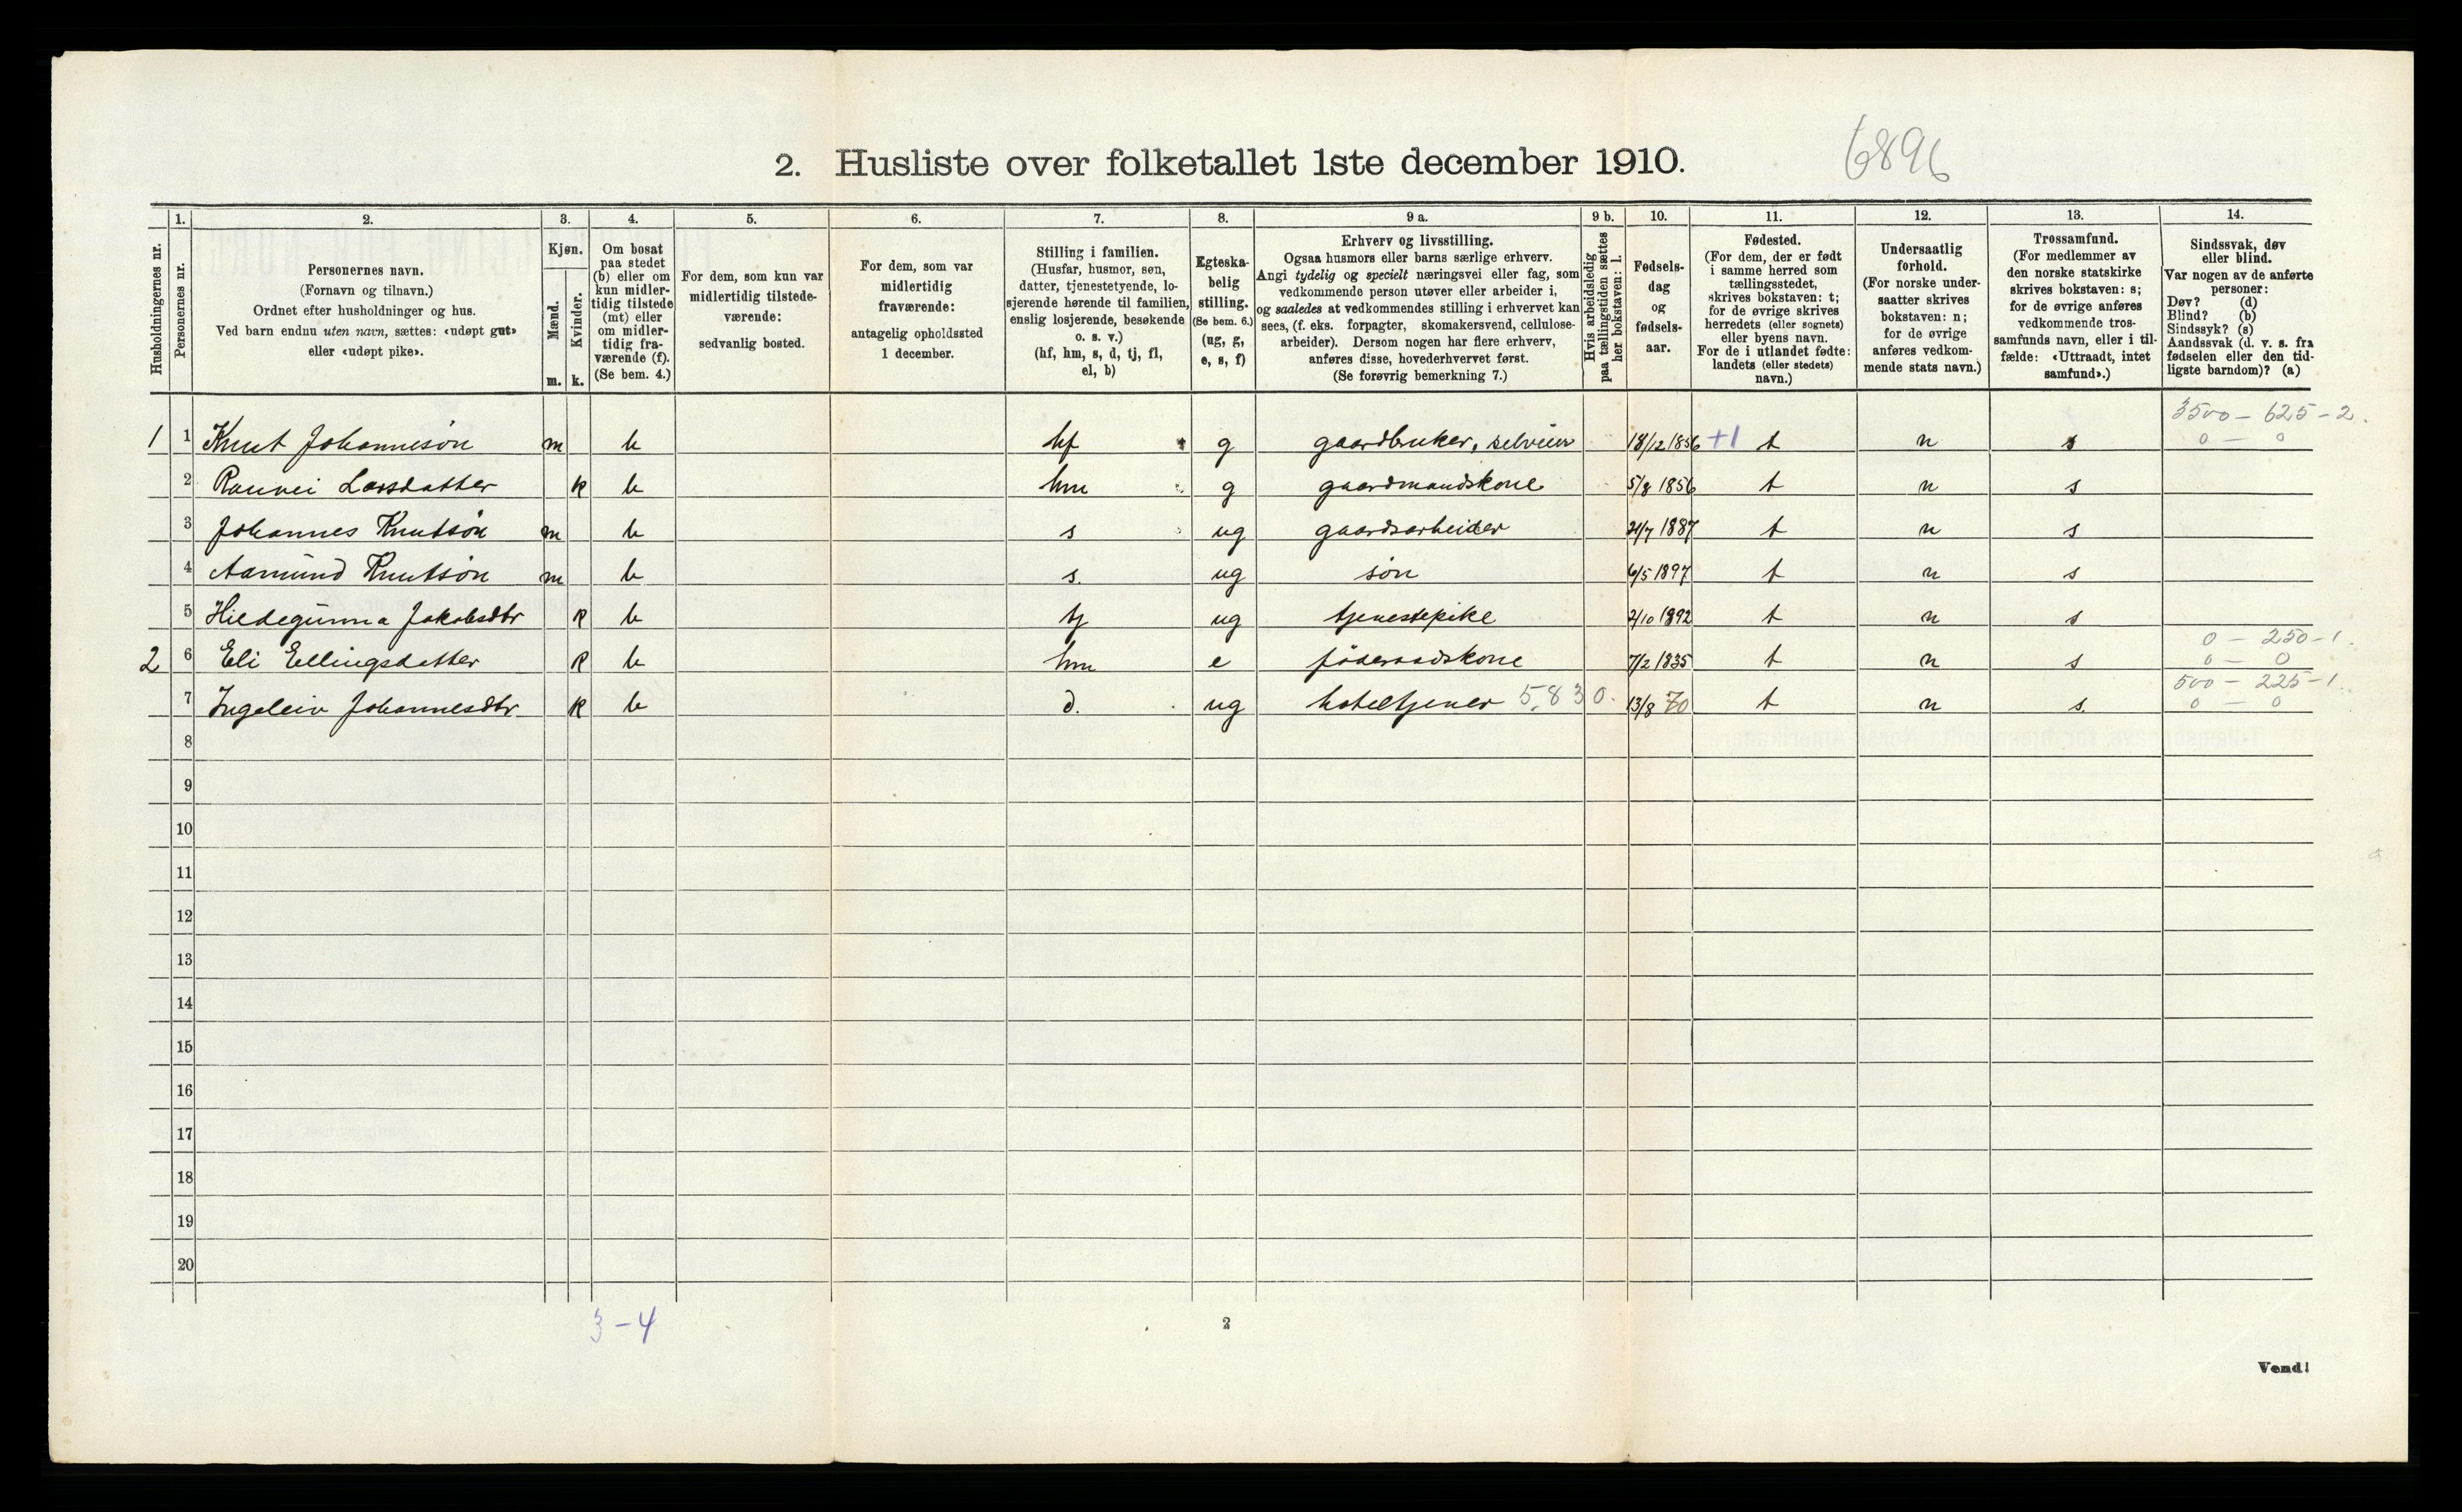 6896
2. Husliste over folketallet 1ste december 1910.
Husholdningernes nr.
1.
Personernes nr.
2.
Personernes navn.
(Fornavn og tilnavn.)
Ordnet efter husholdninger og hus.
Ved barn endnu uten navn, sættes: «udøpt gut»
eller «udøpt pike».
3.
Kjøn.
Mænd.
m.
Kvinder.
k.
4.
Om bosat
paa stedet
(b) eller om
kun midler-
tidig tilstede
(mt) eller
om midler-
tidig fra-
værende (f).
(Se bem. 4.)
5.
For dem, som kun var
midlertidig tilstede-
værende:
sedvanlig bosted.
6.
For dem, som var
midlertidig
fraværende:
antagelig opholdssted
1 december.
7.
Stilling i familien.
(Husfar, husmor, søn,
datter, tjenestetyende, lo-
sjerende hørende til familien,
enslig losjerende, besøkende
o. s. v.)
(hf, hm, s, d, tj, fl,
el, b)
8.
Egteska-
belig
stilling.
(Se bem. 6.)
(ug, g,
e, s, f)
9 a.
Erhverv og livsstilling.
Ogsaa husmors eller barns særlige erhverv.
Angi tydelig og specielt næringsvei eller fag, som
vedkommende person utøver eller arbeider i,
og saaledes at vedkommendes stilling i erhvervet kan
sees, (f. eks. forpagter, skomakersvend, cellulose-
arbeider). Dersom nogen har flere erhverv,
anføres disse, hovederhvervet først.
(Se forøvrig bemerkning 7.)
9 b.
Hvis arbeidsledig
paa tællingstiden sættes
her bokstaven: l.
10.
Fødsels-
dag
og
fødsels-
aar.
11.
Fødested.
(For dem, der er født
i samme herred som
tællingsstedet,
skrives bokstaven: t;
for de øvrige skrives
herredets (eller sognets)
eller byens navn.
For de i utlandet fødte:
landets (eller stedets)
navn.)
12.
Undersaatlig
forhold.
(For norske under-
saatter skrives
bokstaven: n;
for de øvrige
anføres vedkom-
mende stats navn.)
13.
Trossamfund.
(For medlemmer av
den norske statskirke
skrives bokstaven: s;
for de øvrige anføres
vedkommende tros-
samfunds navn, eller i til-
fælde: «Uttraadt, intet
samfund».)
14.
Sindssvak, døv
eller blind.
Var nogen av de anførte
personer:
Døv? (d)
Blind? (b)
Sindssyk? (s)
Aandssvak (d. v. s. fra
fødselen eller den tid-
ligste barndom)? (a)
3500 – 625 – 2.
1 1 Knut Johannesön m b hf g gaardbruker, selveier 18/12 1856 +1 t n s 0 – 0
2 Ranvei Larsdatter k b hm g gaardmandskone 5/8 1856 t n s
3 Johannes Knutsön m b s ug gaardsarbeider 21/7 1887 t n s
4 Aamund Knutsön m b s. ug sön 6/5 1897 t n s
5 Hildegunna Jakobsdtr k b tj ug tjenestepike 2/10 1892 t n s
0 – 250 – 1.
2 6 Eli Ellingsdatter k b hm e föderaadskone 7/2 1835 t n s 0 – 0
500 – 225 – 1.
7 Ingeleiv Johannesdtr k b d. ug hoteltjener 5.830. 13/8 70 t n s. 0 – 0
8
9
10
11
12
13
14
15
16
17
18
19
20
3 – 4
2
Vend!